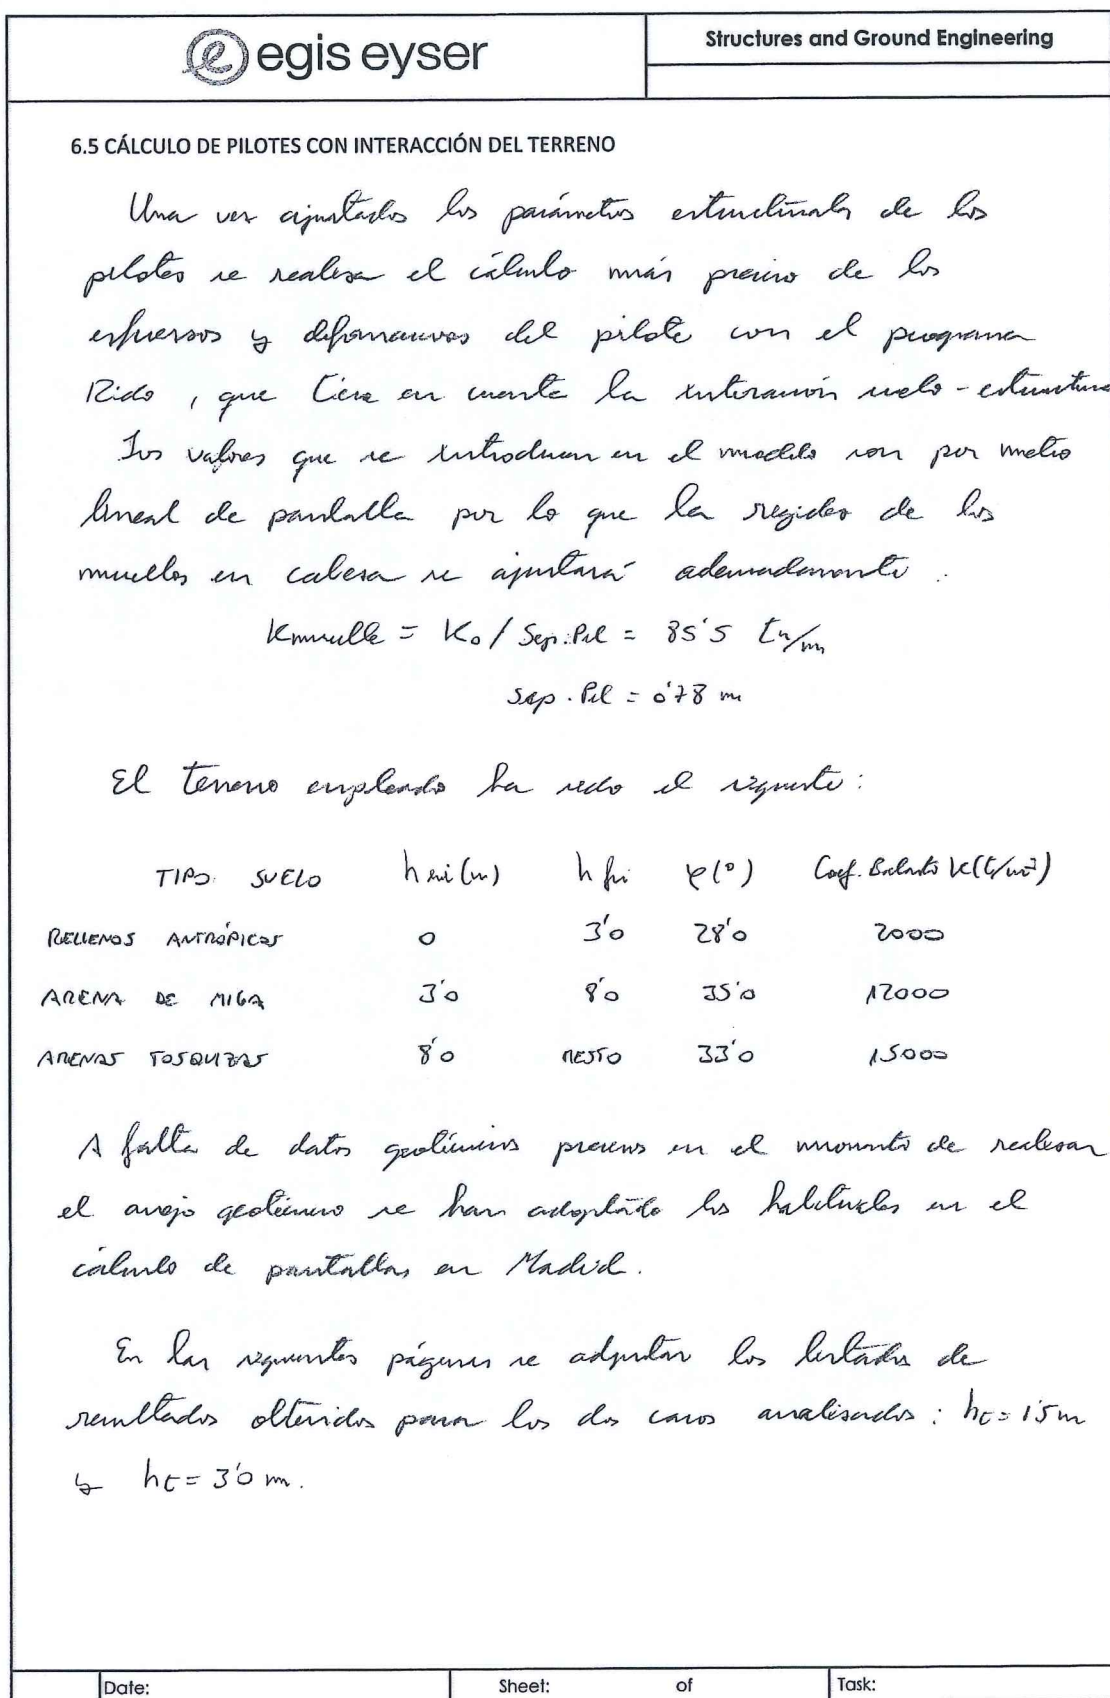 egis eyser
Structures and Ground Engineering
6.5 CÁLCULO DE PILOTES CON INTERACCIÓN DEL TERRENO
Una vez ajustados los parámetros estructurales de los
pilotes se realiza el cálculo más preciso de los
esfuerzos y deformaciones del pilote con el programa
Rido, que tiene en cuenta la interacción suelo-estructura
Los valores que se introducen en el modelo son por metro
lineal de pantalla por lo que la rigidez de los
muelles en cabeza se ajustará adecuadamente.
Kmuelle = K₀ / Sep. Pil = 85'5 tn/m
Sep. Pil = 0'78 m
El terreno empleado ha sido el siguiente:
TIPO SUELO h ini (m) h fin φ(°) Coef. Balasto K(t/m³)
RELLENOS ANTRÓPICOS 0 3'0 28'0 2000
ARENA DE MIGA 3'0 8'0 35'0 12000
ARENAS TOSQUIZAS 8'0 RESTO 33'0 15000
A falta de datos geotécnicos precisos en el momento de realizar
el anejo geotécnico se han adoptado los habituales en el
cálculo de pantallas en Madrid.
En las siguientes páginas se adjuntan los listados de
resultados obtenidos para los dos casos analizados: ht = 1'5 m
y ht = 3'0 m.
Date: Sheet: of Task: